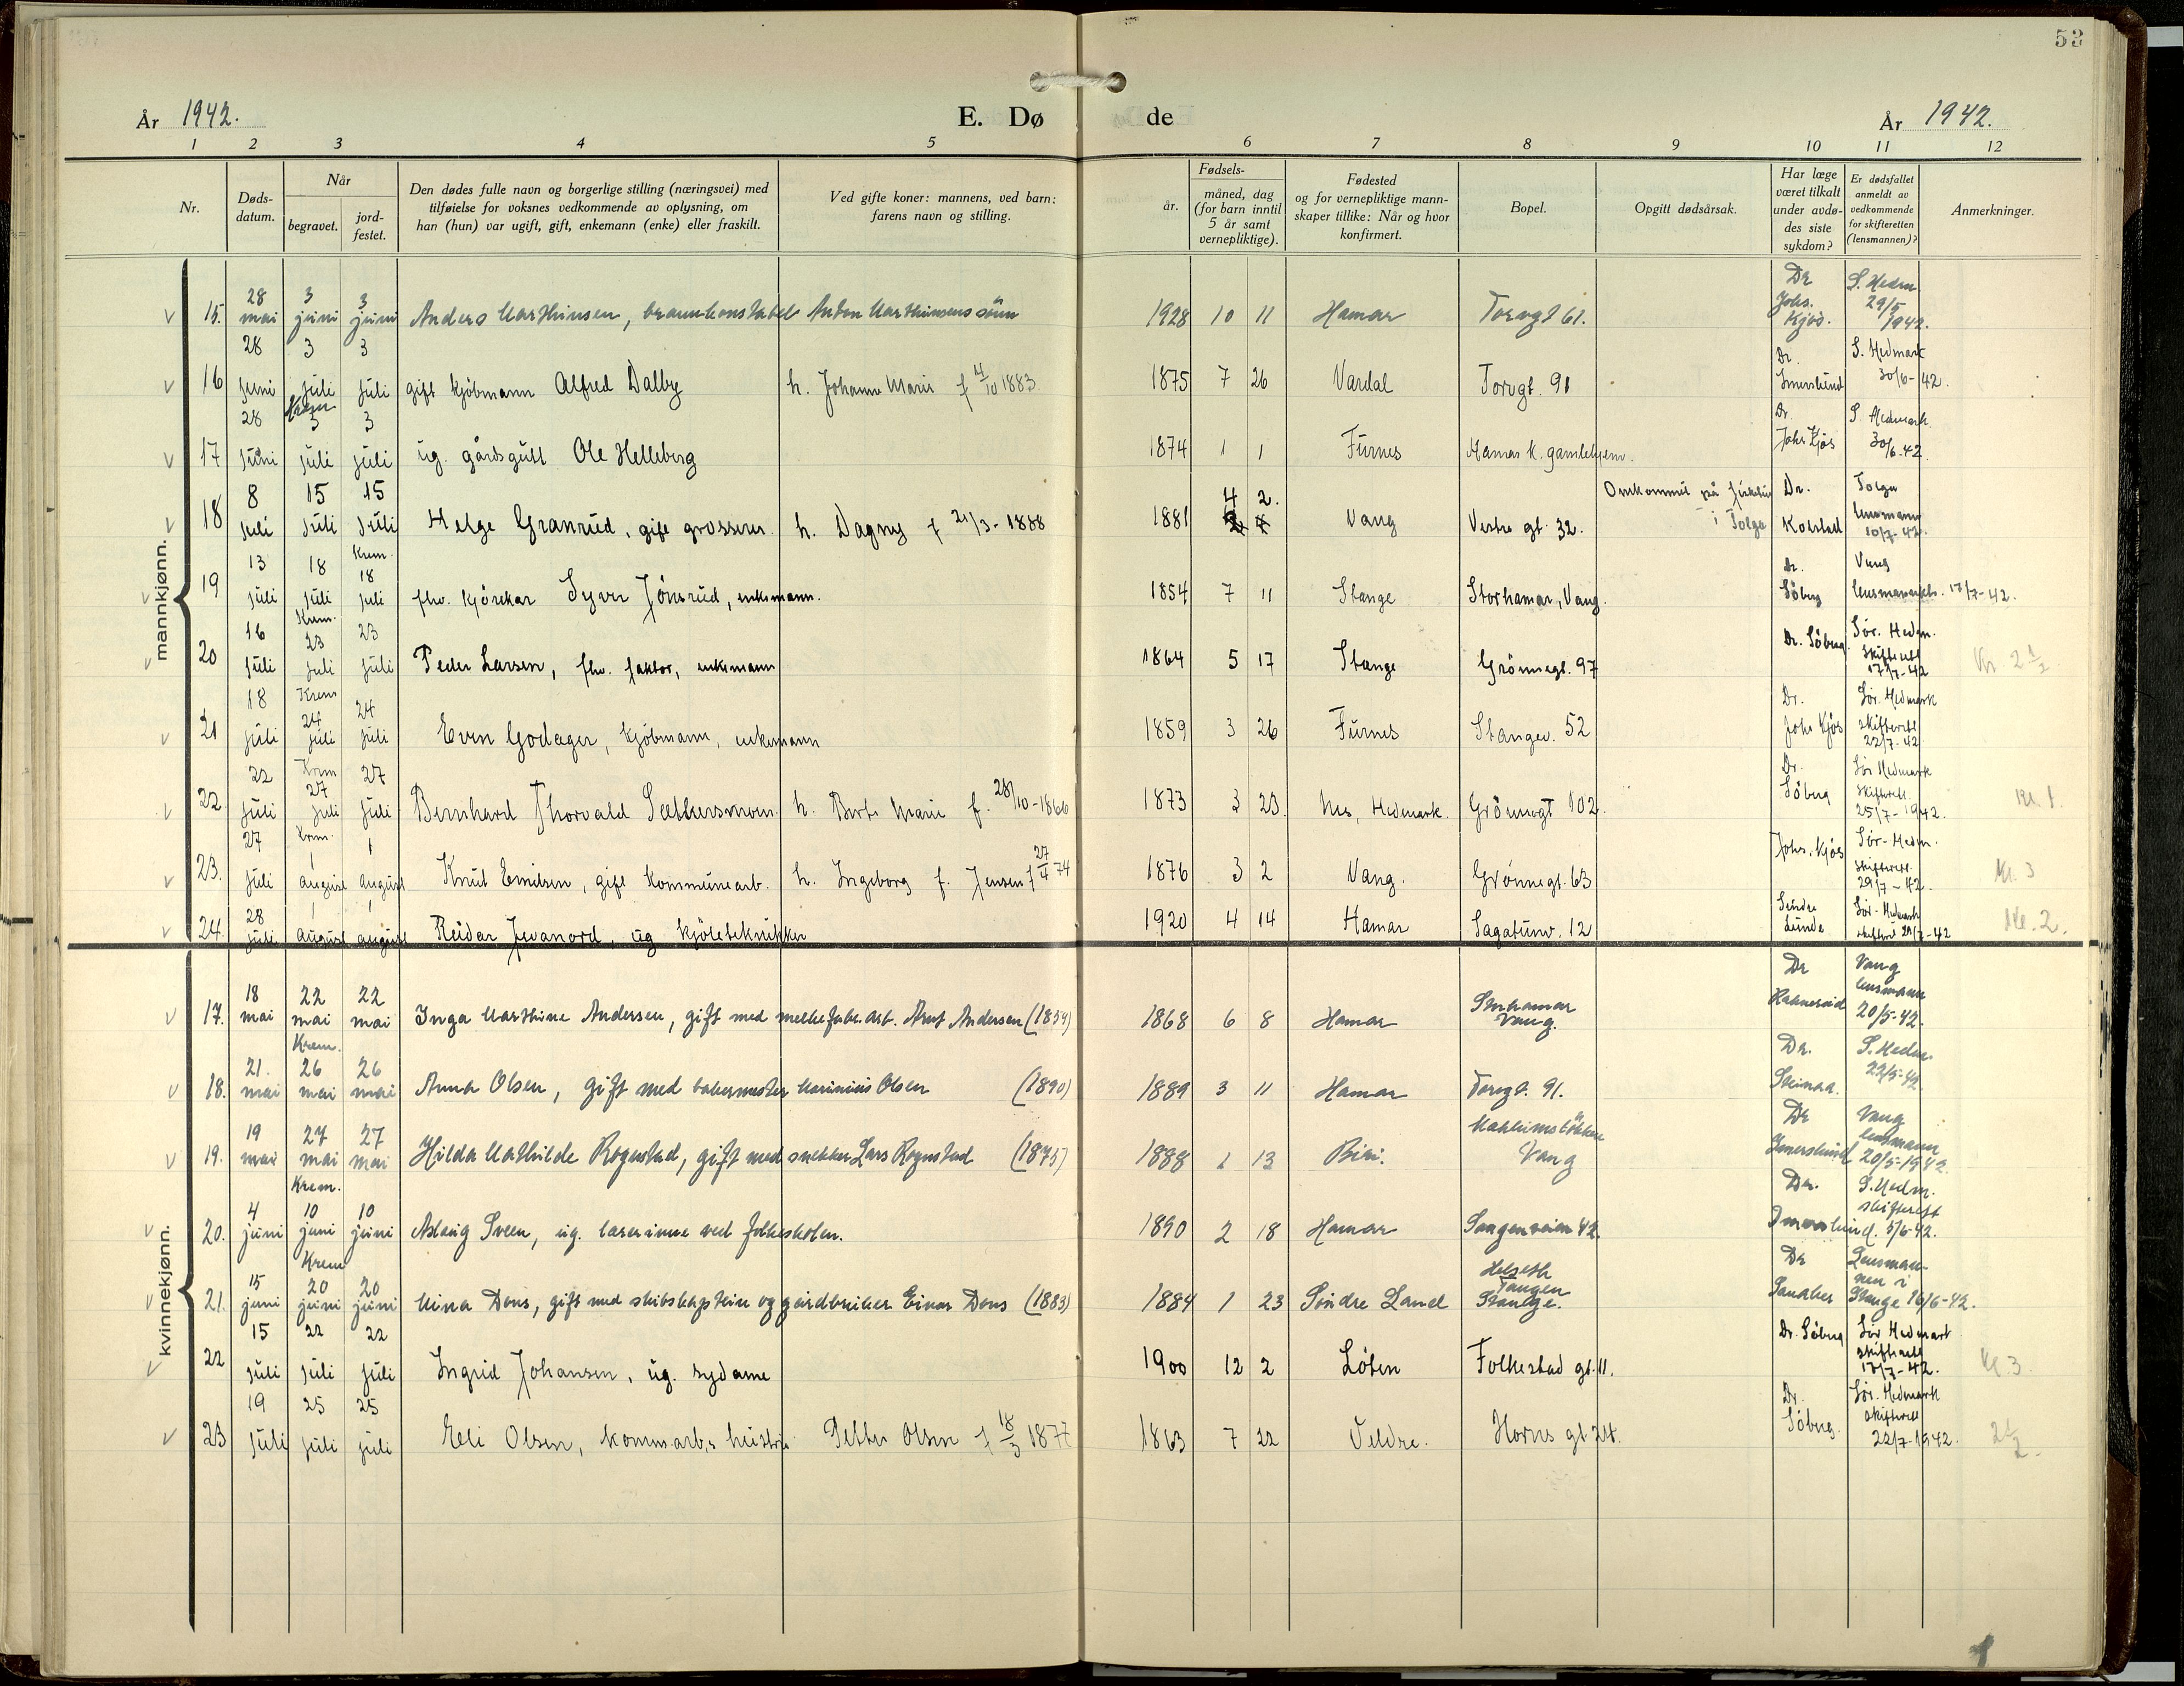 53
År 1942.
E. Dø de
År 1942.
1 2 3 4 5 6 7 8 9 10 11 12
Nr.
Døds-
datum.
Når
begravet.
jord-
festet.
Den dødes fulle navn og borgerlige stilling (næringsvei) med
tilføielse for voksnes vedkommende av oplysning, om
han (hun) var ugift, gift, enkemann (enke) eller fraskilt.
Ved gifte koner: mannens, ved barn:
farens navn og stilling.
Fødsels-
år.
måned, dag
(for barn inntil
5 år samt
vernepliktige).
Fødested
og for vernepliktige mann-
skaper tillike: Når og hvor
konfirmert.
Bopel.
Opgitt dødsårsak.
Har læge
været tilkalt
under avdø-
des siste
sykdom?
Er dødsfallet
anmeldt av
vedkommende
for skifteretten
(lensmannen)?
Anmerkninger.
mannkjønn.
15. 28 mai 3 juni 3 juni Anders Marthinsen, brannkonstabel Anton Marthinsens sönn 1928 10 11 Hamar Torvgt 61. Dr Johs. Kjös. S. Hedm 29/5 1942.
16 28 juni 3 juli Krem 3 juli gift kjöbmann Alfred Dalby h. Johanne Marie f 4/10 1883 1875 7 26 Vardal Torvgt. 91 Dr. Imerslund S. Hedmark 30/6-42.
17 28 juni 3 juli 3 juli ug. gårdsgutt Ole Helleberg 1874 1 1 Furnes Hamar k. gamlehjem. Dr. Johs Kjös S. Hedmark 30/6-42
18 8 juli 15 juli 15 juli Helge Granrud, gift grosserer h. Dagny f 21/3-1888 1881 4 2. Vang Vestre gt. 32. Omkommet på fisketur i Tolga Dr. Kolstad Tolga lensmann 10/7-42.
19 13 juli 18 juli Krem. Krem. 18 juli fhv. kjörekar Syver Jönsrud, enkemann. 1854 7 11 Stange Storhamar, Vang. Dr. Söberg Vang lensmannktr. 17/7-42.
20 16 juli 23 juli 23 juli Peder Larsen, fhv. faktor, enkemann 1864 5 17 Stange Grönnegt. 97 Dr. Söberg Sör. Hedm. skifterett 17/7-42 Kr. 2 1/2
21 18 juli Krem 24 juli 24 juli Even Godager, kjöbmann, enkemann 1859 3 26 Furnes Stangev. 52 Dr. Johs Kjös Sör. Hedmark skifterett 22/7-42
22 22 juli Krem 27 juli 27 juli Bernhard Thorvald Sættersmoen h. Berte Marie f. 28/10-1866 1873 3 23 Nes, Hedmark. Grönnegt 102. Dr. Söberg Sör Hedmark skifterett. 25/7-1942. Kl. 1.
23. 27 juli Krem. 1 august 1 august Knut Emilsen, gift kommunearb. h. Ingeborg f. Jensen f 27/4 74 1876 3 2 Vang. Grönnegt. 63 Johs. Kjös Sör-Hedm. skifterett. 29/7-42. Kl. 3
24. 28 juli 1 august 1 august Reidar Jevanord, ug kjöleteknikker 1920 4 14 Hamar Sagatunv. 12 Lunde Sör-Hedmark 29/7-42 Kl. 2.
kvinnekjønn.
17. 18 mai 22 mai 22 mai Inga Marthine Andersen, gift med melkefabr. arb. Arnt Andersen (1859) 1868 6 8 Hamar Storhamar Vang. Dr Vang lensmann 20/5-42.
18. 21. mai Krem. 26 mai 26 mai Anna Olsen, gift med bakermester Marinius Olsen (1890) 1889 3 11 Hamar Torvgt. 91. Dr. S. Hedm. 22/5-42
19. 19 mai 27 mai 27 mai Hilda Mathilde Rognstad, gift med snekker Lars Rognstad (1875) 1888 1 13 Biri. Vang Dr Imerslund Vang lensmann 20/5-1942.
20. 4 juni Krem. 10 juni 10 juni Aslaug Sveen, ug. lærerinne ved folkeskolen. 1890 2 18 Hamar Stangeveien 42. Dr. Imerslund. S. Hedm. skifterett 5/6-42.
21. 15 juni Krem 20 juni 20 juni Mina Dons, gift med skibskaptein og gårdbruker Einar Dons (1883) 1884 1 23 Söndre Land Helseth Tangen Stange. Dr Sandber Lensmannen i Stange 16/6-42.
22 15 juli 22 juli 22 juli Ingrid Johansen, ug. sydame 1900 12 2 Löten Folkestad gt. 11. Dr. Söberg Sör Hedmark skifterett 17/7-42. Kl. 3.
23 19 juli 25 juli 25 juli Eli Olsen, kommarb.s hustru Petter Olsen f 18/3 1877 1863 7 22 Veldre. Horns gt 24. Dr. Söberg. Sör. Hedmark skifterett 22/7-1942. 2 1/2.